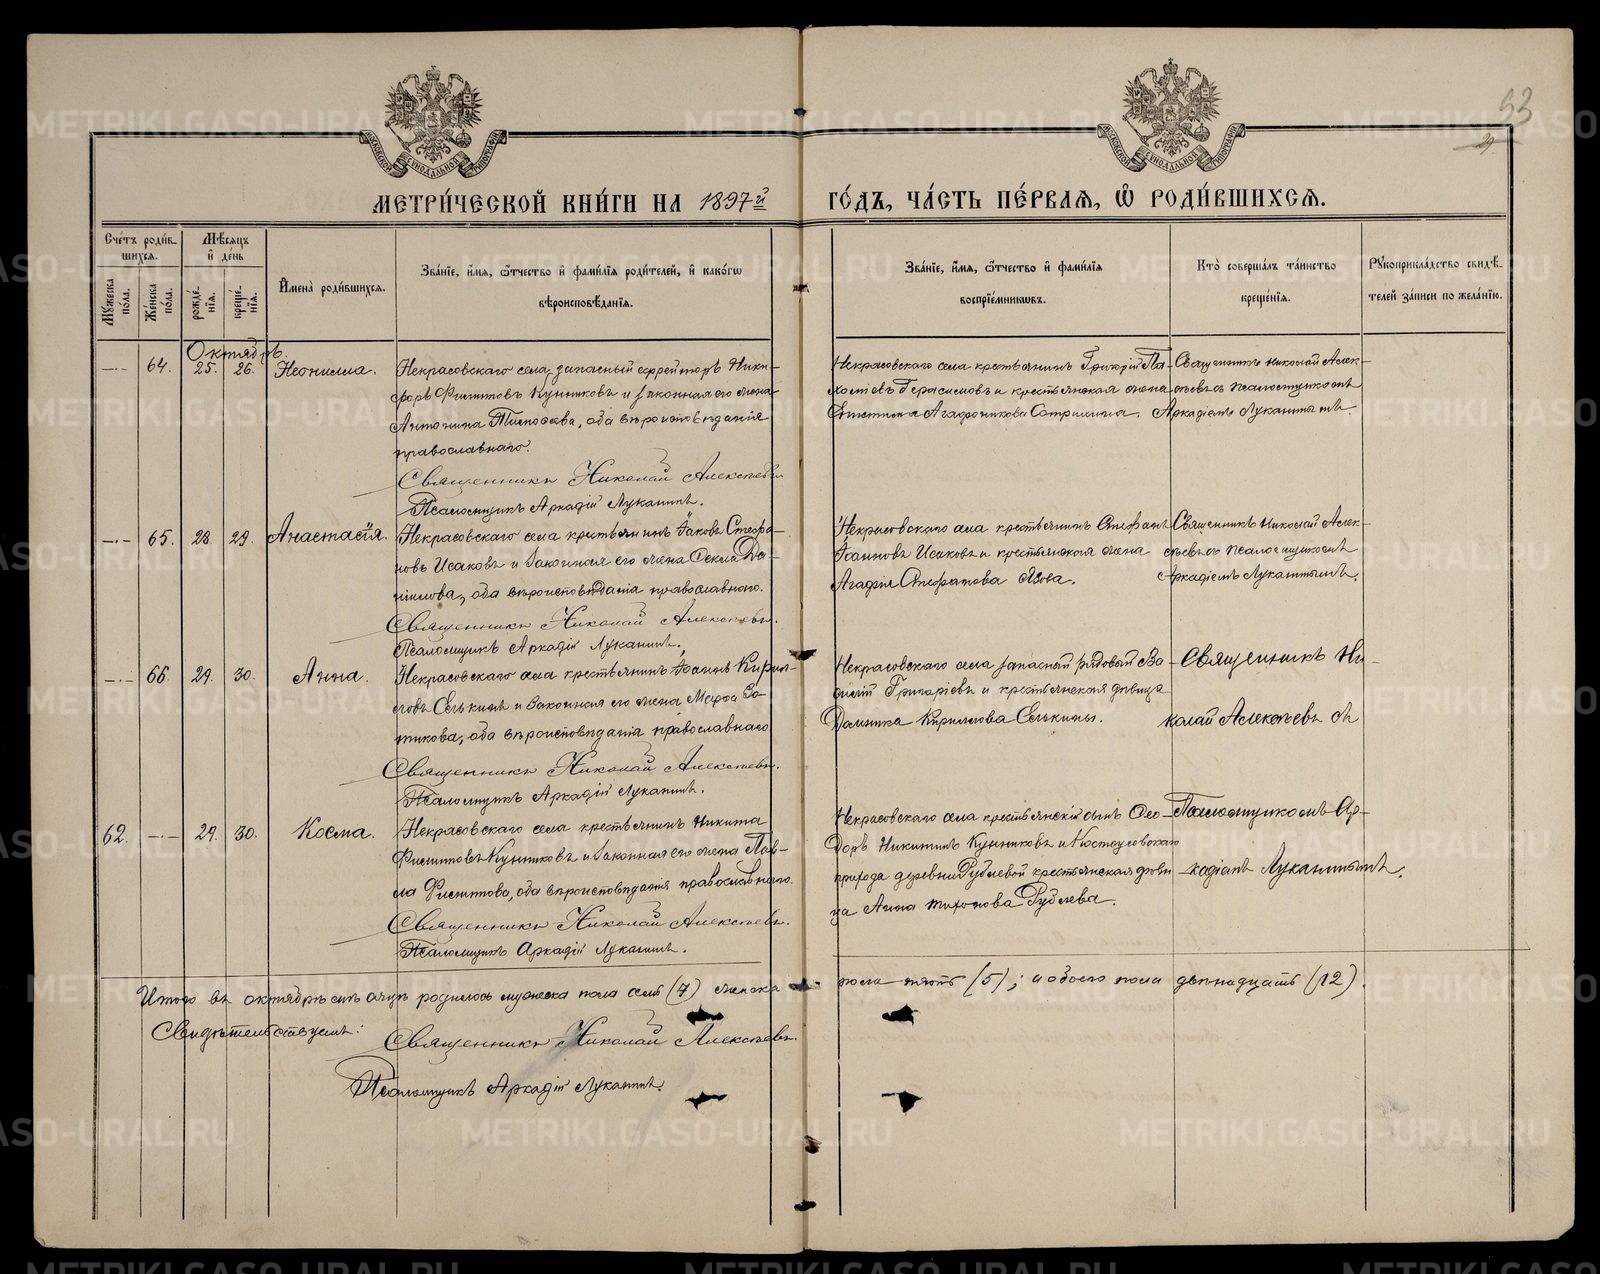 53
29.
МЕТРИ́ЧЕСКОЙ КНИ́ГИ НА 1897й ГО́ДЪ, ЧА́СТЬ ПЕ́РВАѦ, Ѽ РОДИ́ВШИХСѦ.
Сче́тъ роди́в-
шихся.
Мѣ́сяцъ
и҆ де́нь
Мꙋ́жеска по́ла.
Же́нска по́ла.
рожде́-
нїѧ.
креще́-
нїѧ.
И҆мена̀ роди́вшихся.
Зва́нїе, и҆́мя, ѻ҆́тчество и҆ фами́лїя роди́телей, и҆ како́гѡ
вѣроисповѣ́данїя.
Зва́нїе, и҆́мя, ѻ҆́тчество и҆ фами́лїя
воспрїе́мникѡвъ.
Кто̀ соверша́лъ та́инство
креще́нїя.
Рꙋкоприкла́дство свидѣ́-
телей за́писи по жела́нїю.
Октябрь.
64. 25. 26. Неонилла.
Некрасовскаго села запасный ефрейторъ Ники-
форъ Филипповъ Кунниковъ и законная его жена
Антонина, оба вѣроисповѣданія
православнаго.
Священникъ Николай Алексѣевъ
Псаломщикъ Аркадій Луканинъ.
Некрасовскаго села крестьянинъ Григорій Па-
хомовъ Герасимовъ и крестьянская жена
Агафоникова
Священникъ Николай Алек-
сѣевъ съ псаломщикомъ
Аркадіемъ Луканинымъ.
65. 28. 29. Анастасія.
Некрасовскаго села крестьянинъ Іаковъ Стефа-
новъ Исаковъ и законная его жена Ѳекла Да-
нилова, оба вѣроисповѣданія православнаго.
Священникъ Николай Алексѣевъ.
Псаломщикъ Аркадій Луканинъ.
Некрасовскаго села крестьянинъ Стефанъ
Іоанновъ Исаковъ и крестьянская жена
Агафія Стефанова
Священникъ Николай Алек-
сѣевъ съ псаломщикомъ
Аркадіемъ Луканинымъ.
66. 29. 30. Анна.
Некрасовскаго села крестьянинъ Іоаннъ Кирил-
ловъ Селькинъ и законная его жена Марѳа Зо-
тикова, оба вѣроисповѣданія православнаго
Священникъ Николай Алексѣевъ.
Псаломщикъ Аркадій Луканинъ.
Некрасовскаго села запасный рядовой Ва-
силій Григоріевъ и крестьянская дѣвица
Домника Кириллова Селькины.
Священникъ Ни-
колай Алексѣевъ съ
62. 29. 30. Косма.
Некрасовскаго села крестьянинъ Никита
Филипповъ Кунниковъ и законная его жена Пав-
ла Филиппова, оба вѣроисповѣданія православнаго.
Священникъ Николай Алексѣевъ.
Псаломщикъ Аркадій Луканинъ.
Некрасовскаго села крестьянскій сынъ Ѳео-
доръ Никитинъ Кунниковъ и Костоусовскаго
прихода деревни Рублевой крестьянская дѣви-
ца Анна Тихонова Рублева.
Псаломщикомъ Ар-
кадіемъ Луканинымъ.
Итого въ октябрѣ мѣсяцѣ родилось мужеска пола семь (7) женска пола пять (5); и обоего пола двѣнадцать (12).
Свидѣтельствуемъ:
Священникъ Николай Алексѣевъ.
Псаломщикъ Аркадій Луканинъ.
METRIKI.GASO-URAL.RU